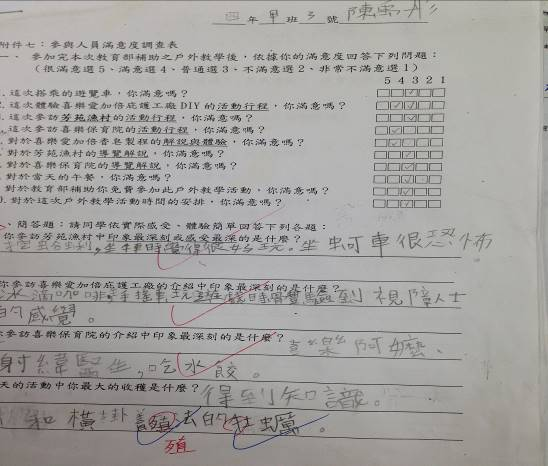 四年甲班3號陳
附件七：參與人員滿意度調查表
一、參加完本次教育部補助之戶外教學後，依據你的滿意度回答下列問題：
（很滿意選5、滿意選4、普通選3、不滿意選2、非常不滿意選1）
5 4 3 2 1
.這次搭乘的遊覽車，你滿意嗎？
.這次體驗喜樂愛加倍庇護工廠DIY的活動行程，你滿意嗎？
.這次參訪芳苑漁村的活動行程，你滿意嗎？
.這次參訪喜樂保育院的活動行程，你滿意嗎？
.對於喜樂愛加倍香皂製程的解說與體驗，你滿意嗎？
.對於芳苑漁村的導覽解說，你滿意嗎？
.對於喜樂保育院的導覽解說，你滿意嗎？
.對於當天的午餐，你滿意嗎？
.對於教育部補助你免費參加此戶外教學活動，你滿意嗎？
.對於這次戶外教學活動時間的安排，你滿意嗎？
、簡答題：請同學依實際感受、體驗簡單回答下列各題：
你參訪芳苑漁村中印象最深刻或感受最深的是什麼？
坐牛車時覺得很好玩。坐蚵車很恐怖
你參訪喜樂愛加倍庇護工廠的介紹中印象最深刻的是什麼？
冰滴咖啡、手搖車 體驗到視障人士
的感覺。
你參訪喜樂保育院的介紹中印象最深刻的是什麼？
喜樂阿嬤、
射 ，吃水餃。
天的活動中你最大的收穫是什麼？
得到知識。
和橫掛養殖法的牡蠣。
殖